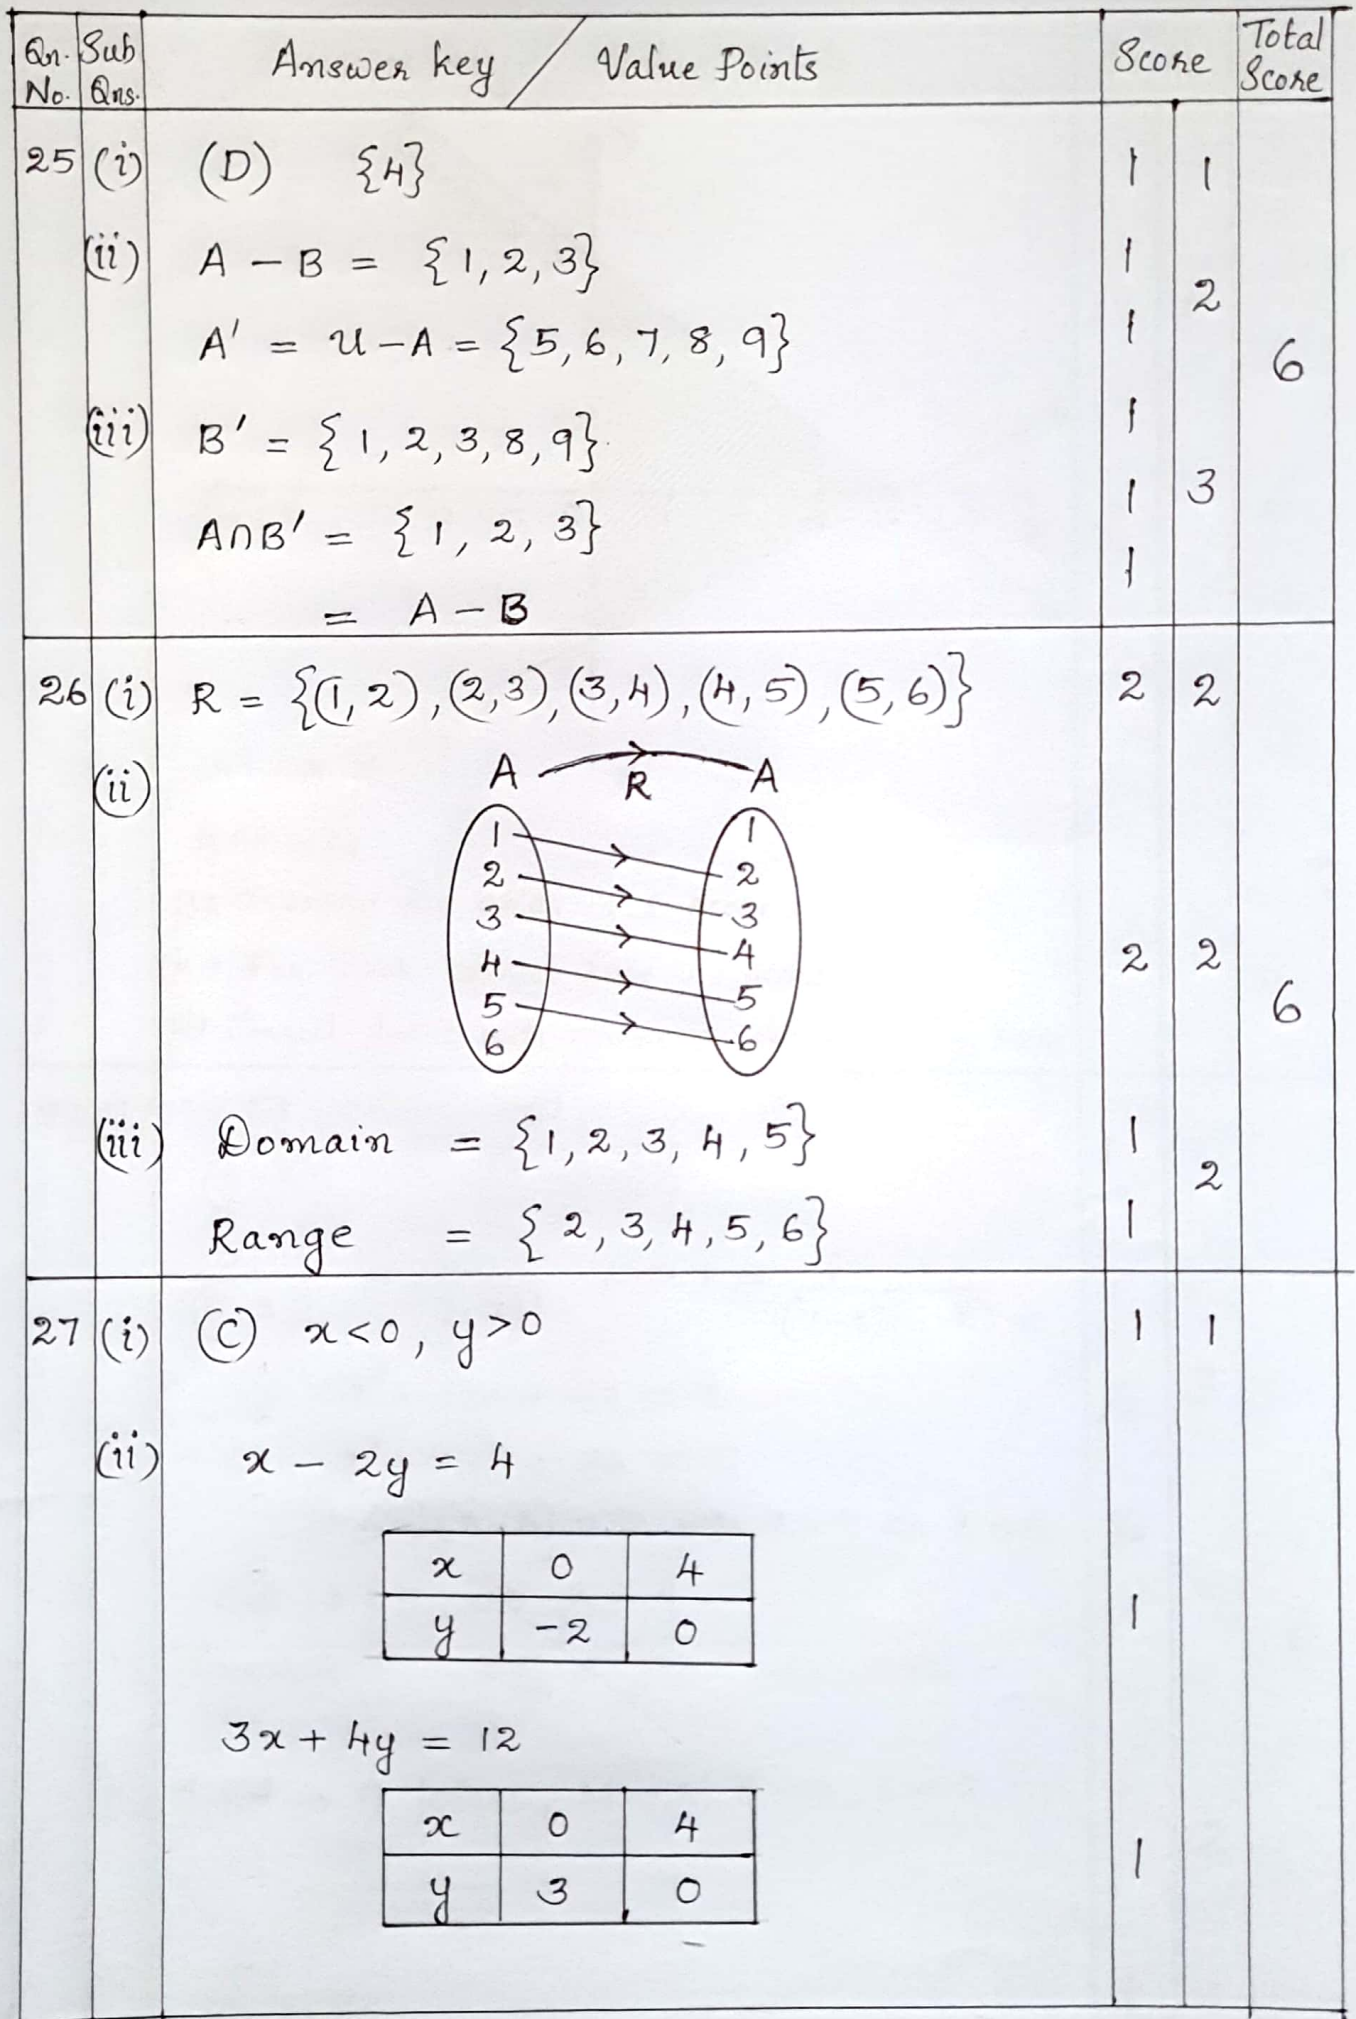 Qn. No. Sub Qns. Answer key / Value Points Score Total Score
25 (i) (D) {4} 1 1
(ii) A - B = {1, 2, 3} 1
2
A' = U - A = {5, 6, 7, 8, 9} 1
6
(iii) B' = {1, 2, 3, 8, 9} 1
A∩B' = {1, 2, 3} 1 3
= A - B 1
26 (i) R = {(1, 2), (2, 3), (3, 4), (4, 5), (5, 6)} 2 2
(ii) A R A
1 1
2 2
3 3
4 4 2 2
5 5 6
6 6
(iii) Domain = {1, 2, 3, 4, 5} 1
2
Range = {2, 3, 4, 5, 6} 1
27 (i) (C) x<0, y>0 1 1
(ii) x - 2y = 4
x 0 4
y -2 0 1
3x + 4y = 12
x 0 4
y 3 0 1